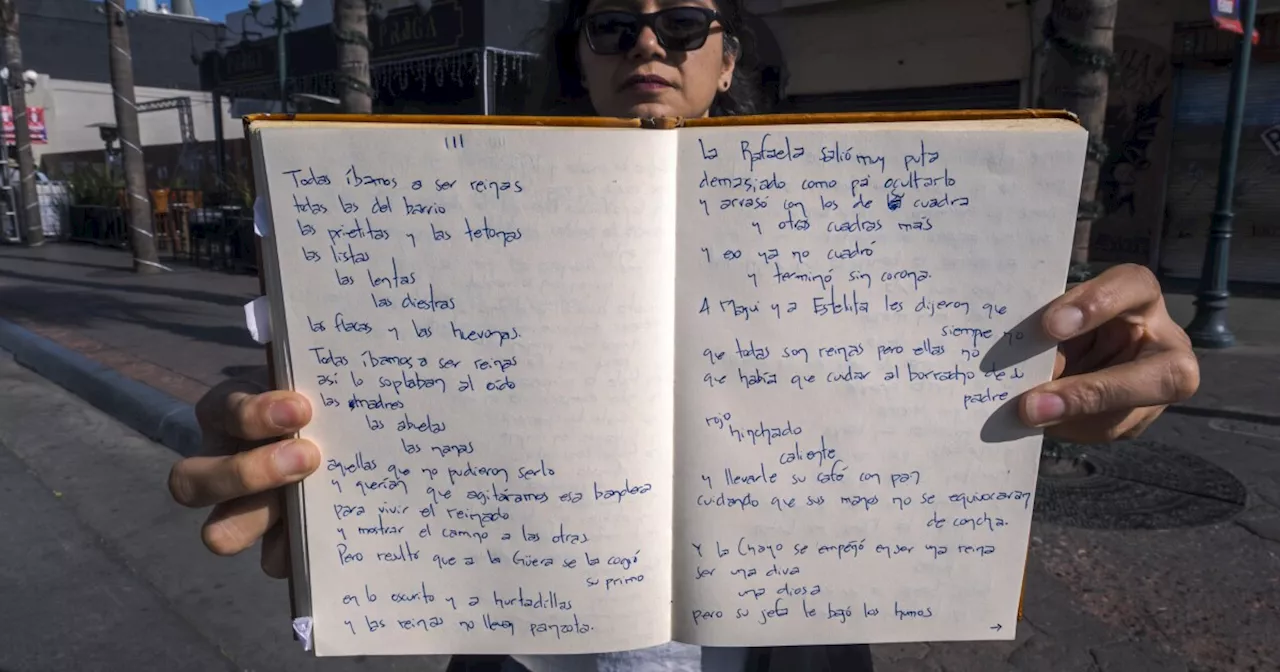 PRAGA
III
Todas íbamos a ser reinas
todas las del barrio
las prietitas y las tetonas
las listas
las lentas
las diestras
las flacas y las huevonas.
Todas íbamos a ser reinas
así lo soplaban al oído
las madres
las abuelas
las nanas
aquellas que no pudieron serlo
y querían que agitáramos esa bandera
para vivir el reinado
y mostrar el camino a las otras
Pero resultó que a la Güera se la cogió
su primo
en lo oscurito y a hurtadillas
y las reinas no lleven panzota.
La Rafaela salió muy puta
demasiado como pa ocultarlo
y arrasó con los de la cuadra
y otras cuadras más
y eso ya no cuadró
y terminó sin corona.
A Magui y a Estelita les dijeron que
siempre no
que todas son reinas pero ellas no
que había que cuidar al borracho de su
padre
rojo
hinchado
caliente
y llevarle su café con pan
cuidando que sus manos no se equivocaran
de concha.
Y la Chayo se empeñó en ser una reina
ser una diva
una diosa
pero su jefa le bajó los humos
→